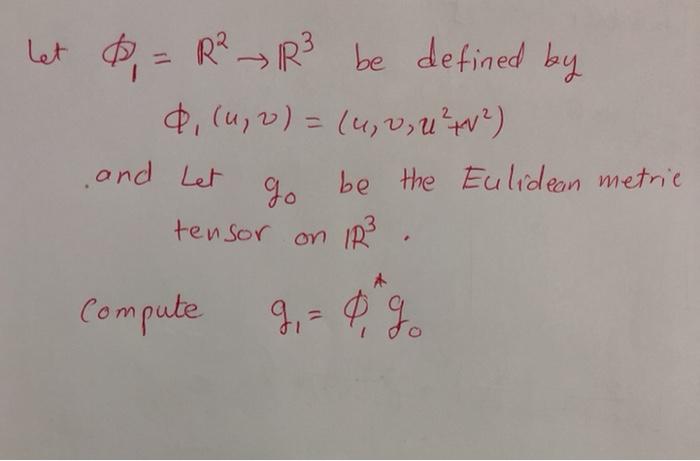 Let ϕ₁ = ℝ² → ℝ³ be defined by
ϕ₁ (u, v) = (u, v, u²+v²)
.and Let g₀ be the Eulidean metric
tensor on ℝ³ .
Compute g₁ = ϕ₁* g₀